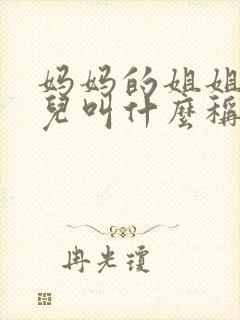 妈妈的姐姐
兒叫什麼稱
冉光瓊